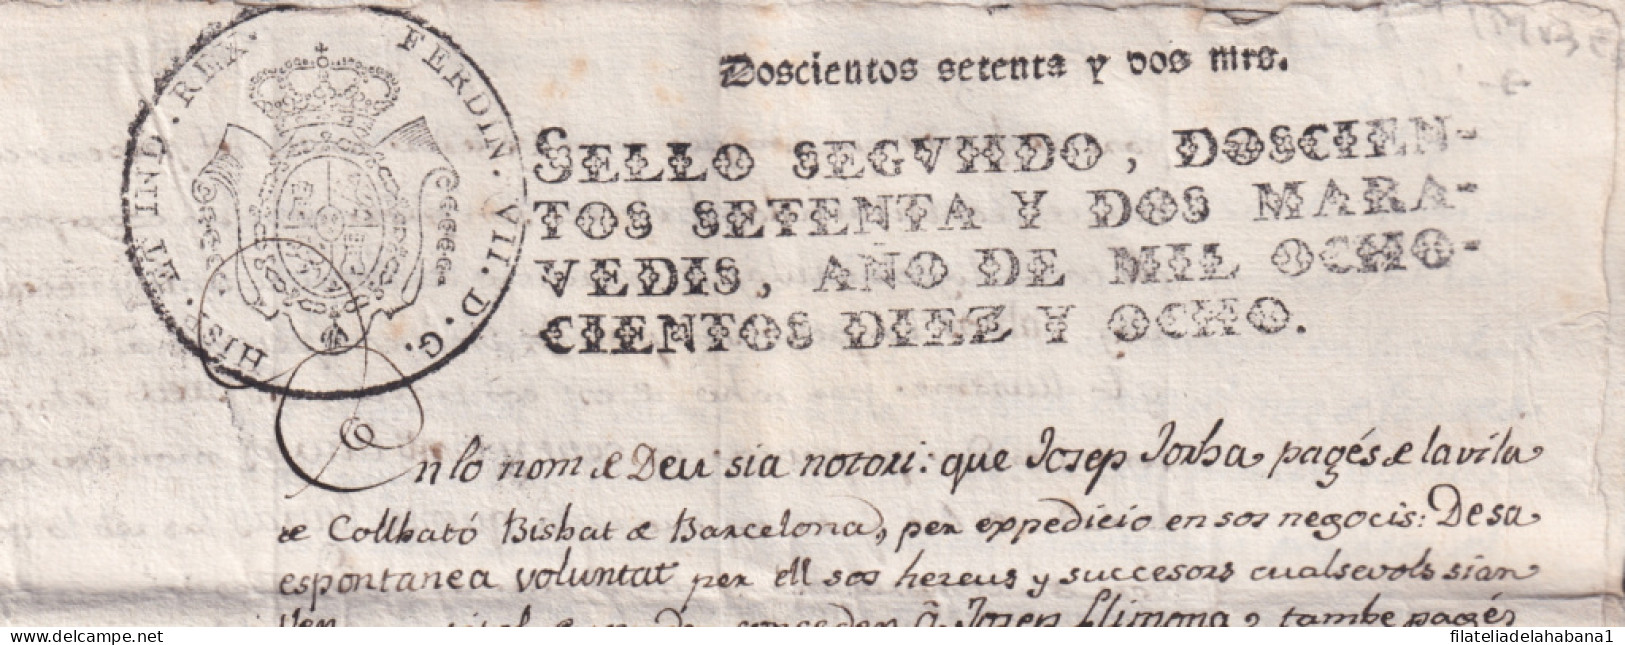 FERDIN. VII. D. G. HISP. ET IND. REX.
Doscientos setenta y dos mrs.
SELLO SEGVNDO, DOSCIEN-
TOS SETENTA Y DOS MARA-
VEDIS, AÑO DE MIL OCHO-
CIENTOS DIEZ Y OCHO.
En lo nom de Deu sia notori: que Josep Jorba pagés de la vila
de Collbató Bisbat de Barcelona, per expedicio en sos negocis: De sa
espontanea voluntat per ell sos hereus y successors cualsevols sian
Ven conceden á Josep Llimona, tambe pagés
delcampe.net
filateliadelahabana1